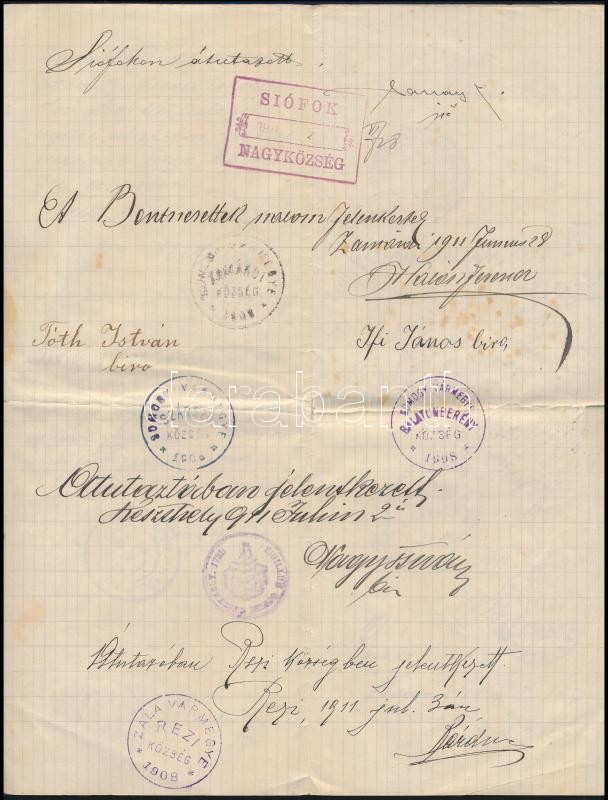 Siófokon átutazott.
SIÓFOK
NAGYKÖZSÉG
A Bentnevettek nálam Jelenkestek
Zamárdi 1911 Junius 28
Halász Ferencz
SOMOGY VÁRMEGYE
ZAMÁRDI
KÖZSÉG
1908
Tóth István
biro
Ifi János biró
SOMOGY VÁRMEGYE
KÖZSÉG
1908
SOMOGY VÁRMEGYE
BALATONBERÉNY
KÖZSÉG
1908
darabanth
Átutaztában jelentkezett
Keszthely 911 Julius 2án
Nagy István
bir
Átutazóban Rezi községben jelentkezett.
Rezi, 1911 jul. 3án
ZALA VÁRMEGYE
REZI
KÖZSÉG
1908